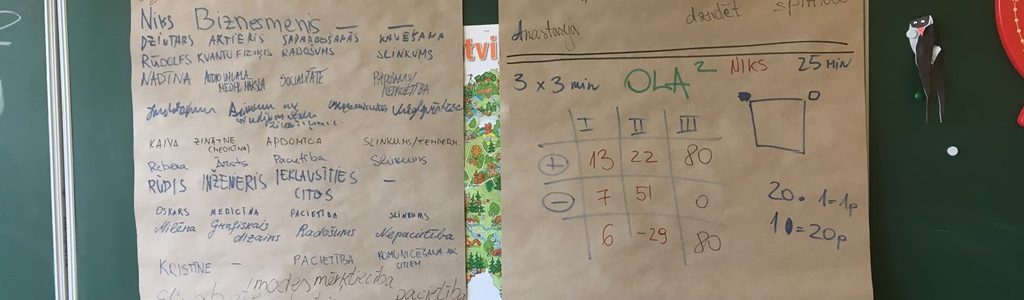 NIKS BIZNESMENIS — —
DZINTARS AKTIERIS SAPARDOŠANĀS KAVĒŠANA
RŪDOLFS KVANTU FIZIĶIS RADOŠUMS SLINKUMS
NADĪNA AUDIO VIZUĀLĀ MEDIJ. MĀKSLA SOCIALITĀTE RADOŠUMS/
NEPACIETĪBA
KAIVA ZINĀTNE APDOMĪGA SLINKUMS/TEMPERM.
(MEDICĪNA)
Rebeka Ārsts Pacietība Slinkums
RŪDIS INŽENIERIS IEKLAUSĪTIES —
CITOS
OSKARS MEDICĪNA PACIETĪBA SLINKUMS
Milēna Grafiskais Radošums Nepacietība
dizains
KRISTĪNE — PACIETĪBA KOMUNICĒŠANA AR
CITIEM
mērķtiecība
pacietība
tvi
Anastasija dziedēt
3 x 3 min OLA² NIKS 25 MIN
I II III
+ 13 22 80
− 7 51 0
6 -29 80
20 • 1=1p
1 =20p